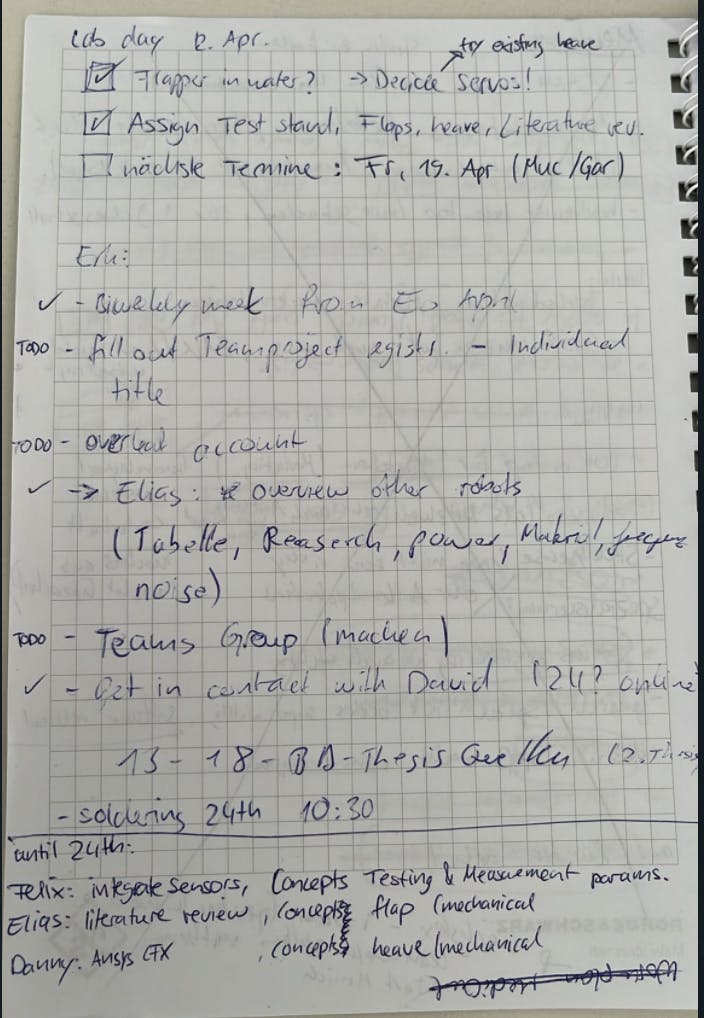 Lab day 12. Apr.
try existing heave
☑ Flapper in water? → Decide Servos!
☑ Assign Test stand, Flaps, heave, Literature rev.
☐ nächste Termine: Fr, 19. Apr (Muc/Gar)
✓ - Biweekly meet from Apri
TODO - fill out Teamproject - Individual
title
TODO - account
✓ -> Elias: overview other robots
(Tabelle, Reaserch, power,
noise)
TODO - Teams Group (machen)
✓ - Get in contact with David (24? online
13 - 18 - BA-Thesis Quellen (2. Thesis
- soldering 24th 10:30
until 24th:
Felix: integrate sensors, Concepts Testing & Measurement params.
Elias: literature review, concepts flap (mechanical
Danny: Ansys CFX, concepts heave (mechanical